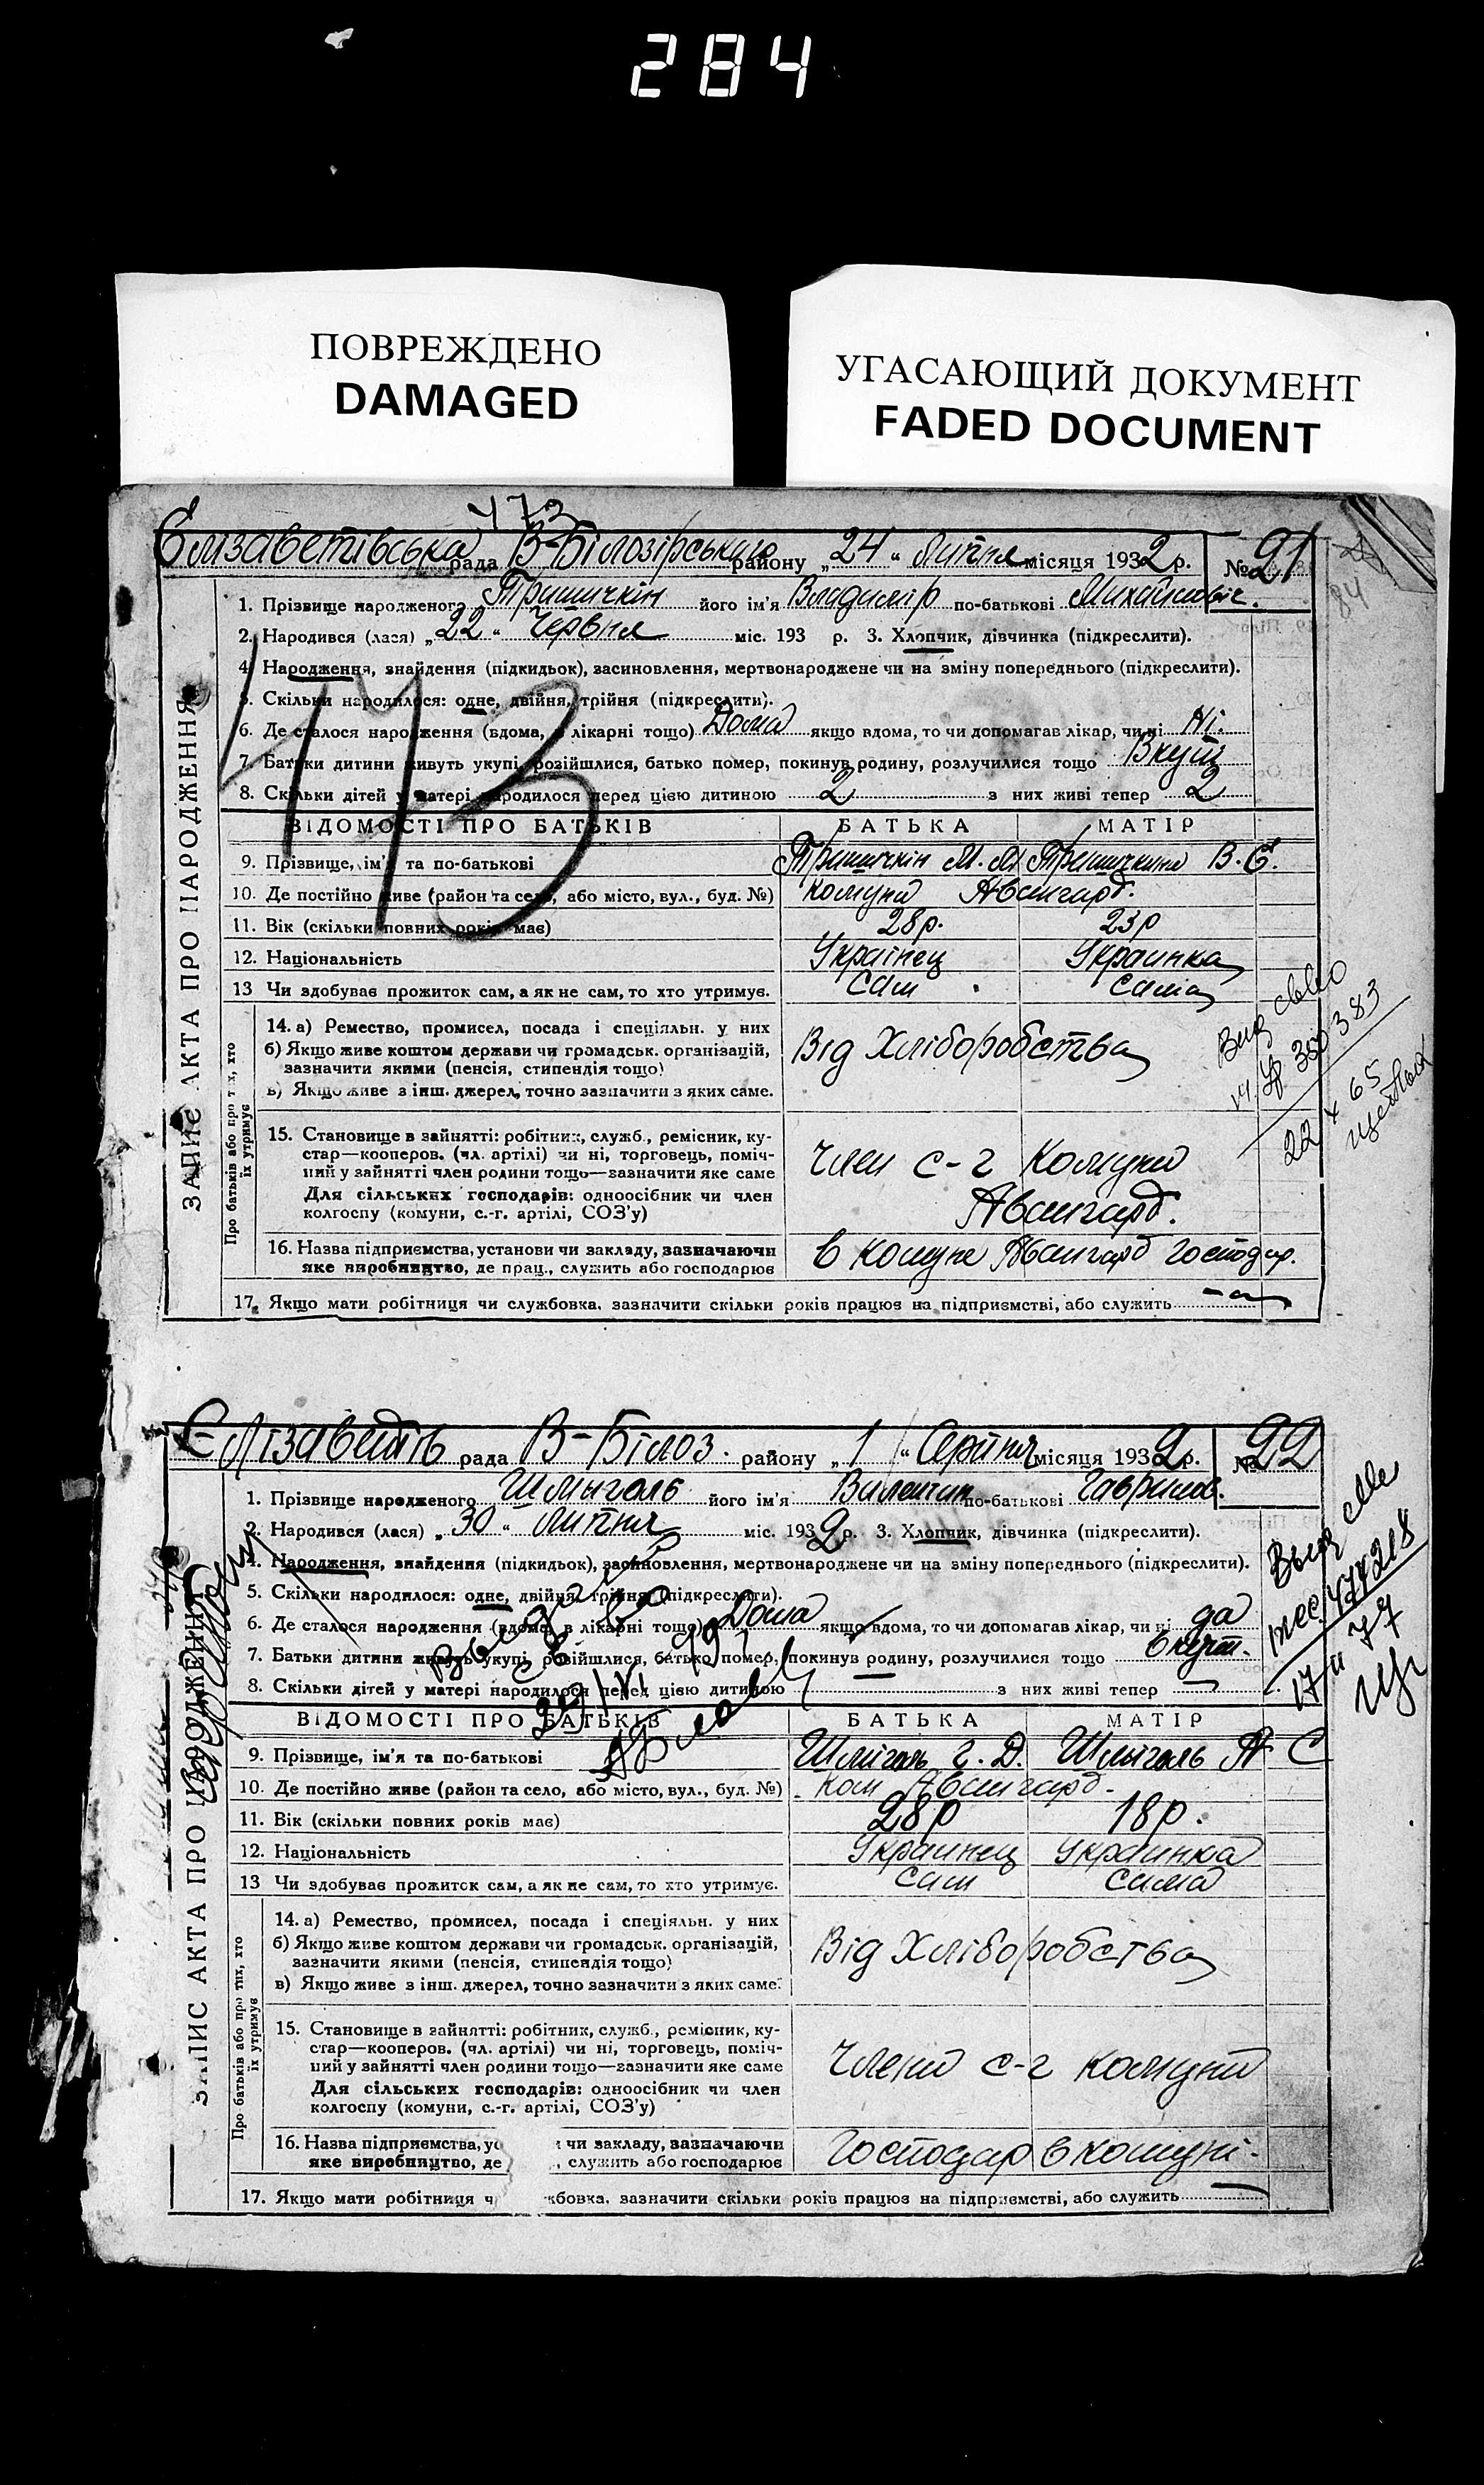 284
ПОВРЕЖДЕНО
DAMAGED
УГАСАЮЩИЙ ДОКУМЕНТ
FADED DOCUMENT
473
Єлізаветівська рада В-Білозірського району „24“ Липня місяця 1932 р. № 21
84
ЗАПИС АКТА ПРО НАРОДЖЕННЯ
1. Прізвище народженого Тришичкін його ім'я Владимір по-батькові Михайлович.
2. Народився (лася) „22“ Червня міс. 193 р. 3. Хлопчик, дівчинка (підкреслити).
4. Народження, знайдення (підкидьок), засиновлення, мертвонароджене чи на зміну попереднього (підкреслити).
5. Скільки народилося: одне, двійня, трійня (підкреслити).
6. Де сталося народження (вдома, в лікарні тощо) Дома якщо вдома, то чи допомагав лікар, чи ні Ні.
7. Батьки дитини живуть укупі, розійшлися, батько помер, покинув родину, розлучилися тощо Вкупі
8. Скільки дітей у матері народилося перед цією дитиною 2 з них живі тепер 2
173
ВІДОМОСТІ ПРО БАТЬКІВ БАТЬКА МАТІР
9. Прізвище, ім'я та по-батькові Тришичкін М. М. Тришичкина В. Є.
10. Де постійно живе (район та село, або місто, вул., буд. №) Комуна Авангард.
11. Вік (скільки повних років має) 28р. 23р
12. Національність Українец Украинка
13 Чи здобуває прожиток сам, а як не сам, то хто утримує. Сам Сама
Про батьків або про тих, хто їх утримує
14. а) Ремество, промисел, посада і спеціяльн. у них
б) Якщо живе коштом держави чи громадськ. організацій,
зазначити якими (пенсія, стипендія тощо)
в) Якщо живе з інш. джерел, точно зазначити з яких саме.
Від Хліборобства
15. Становище в зайнятті: робітник, служб., ремісник, ку-
стар—кооперов. (чл. артілі) чи ні, торговець, поміч-
ний у зайнятті член родини тощо—зазначити яке саме
Для сільських господарів: одноосібник чи член
колгоспу (комуни, с.-г. артілі, СОЗ'у)
Член с-г Комуни
Авангард.
16. Назва підприємства, установи чи закладу, зазначаючи
яке виробництво, де прац., служить або господарює
в комуне Авангард Господар.
17. Якщо мати робітниця чи службовка, зазначити скільки років працює на підприємстві, або служить
350383
22
65
Єлізаветів рада В-Білоз. району „1“ Серпня місяця 1932 р. № 22
ЗАПИС АКТА ПРО НАРОДЖЕННЯ
1. Прізвище народженого Шмыголь його ім'я Вилентин по-батькові Гаврилов.
2. Народився (лася) „30“ Липня міс. 1932 р. 3. Хлопчик, дівчинка (підкреслити).
4. Народження, знайдення (підкидьок), засиновлення, мертвонароджене чи на зміну попереднього (підкреслити).
5. Скільки народилося: одне, двійня, трійня (підкреслити).
6. Де сталося народження (вдома, в лікарні тощо) Дома якщо вдома, то чи допомагав лікар, чи ні да
7. Батьки дитини живуть укупі, розійшлися, батько помер, покинув родину, розлучилися тощо вкупі.
8. Скільки дітей у матері народилося перед цією дитиною з них живі тепер
ВІДОМОСТІ ПРО БАТЬКІВ БАТЬКА МАТІР
9. Прізвище, ім'я та по-батькові Шмиголь Г. Д. Шмыголь А С
10. Де постійно живе (район та село, або місто, вул., буд. №) Ком Авангард.
11. Вік (скільки повних років має) 28р 18р.
12. Національність Украинец Украинка
13 Чи здобуває прожиток сам, а як не сам, то хто утримує. Сам Сама
Про батьків або про тих, хто їх утримує
14. а) Ремество, промисел, посада і спеціяльн. у них
б) Якщо живе коштом держави чи громадськ. організацій,
зазначити якими (пенсія, стипендія тощо)
в) Якщо живе з інш. джерел, точно зазначити з яких саме.
Від Хліборобства
15. Становище в зайнятті: робітник, служб., ремісник, ку-
стар—кооперов. (чл. артілі) чи ні, торговець, поміч-
ний у зайнятті член родини тощо—зазначити яке саме
Для сільських господарів: одноосібник чи член
колгоспу (комуни, с.-г. артілі, СОЗ'у)
Члени с-г комуни
16. Назва підприємства, ус чи закладу, зазначаючи
яке виробництво, де , служить або господарює
Господар в комуні.
17. Якщо мати робітниця ч жбовка, зазначити скільки років працює на підприємстві, або служить
474218
17 II 77